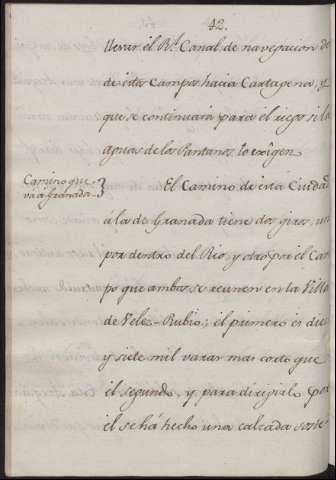 42.
llevar el Rl. Canal de navegacion de
de estos Campos hacia Cartagena, y
que se continuará para el riego si las
aguas de los Pantanos lo exigen
Camino que
vá á Granada
El Camino de esta Ciudad
á la de Granada tiene dos giros, uno
por dentro del Rio, y otro por el Cam
po que ambos se reunen en la Villa
de Velez-Rubio; el primero es diez
y siete mil varas mas corto que
el segundo, y para dirigirlo por
el se há hecho una calzada sobre